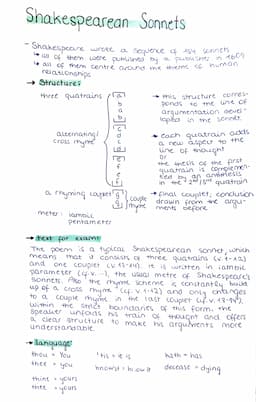 Shakespearean Sonnets
- Shakespeare wrote a sequence of 154 sonnets
↳ all of them were published by a publisher in 1609
↳ all of them centre around the theme of human
relationships
→ Structure:
three quatrains
a
b
a
b
alternating/
cross rhyme
c
d
c
d
e
f
e
f
a rhyming couplet
g
g
couple
rhyme
meter: iambic
pentameter
→ this structure corres-
ponds to the line of
argumentation devel-
oped in the sonnet
→ each quatrain adds
a new aspect to the
line of thought
or
the thesis of the first
quatrain is complemen-
ted by an antithesis
in the quatrain
→ final couplet: conclusion
drawn from the argu-
ments before
→ Text for exam:
The poem is a typical Shakespearean sonnet, which
means that it consists of three quatrains (v. 1-12)
and one couplet (v. 13-14). It is written in iambic
parameter (cf. v. ..), the usual metre of Shakespeare's
sonnets. Also the rhyme scheme is constantly build
up of a cross rhyme (cf. v. 1-12) and only changes
to a couple rhyme in the last couplet (cf. v. 13-14).
Within the strict boundaries of this form, the
speaker unfolds his train of thought and offers
a clear structure to make his arguments more
understandable.
→ Language:
thou = you
thee = you
thine = yours
thee = yours
'tis = it is
knowst = know
hath = has
decease = dying